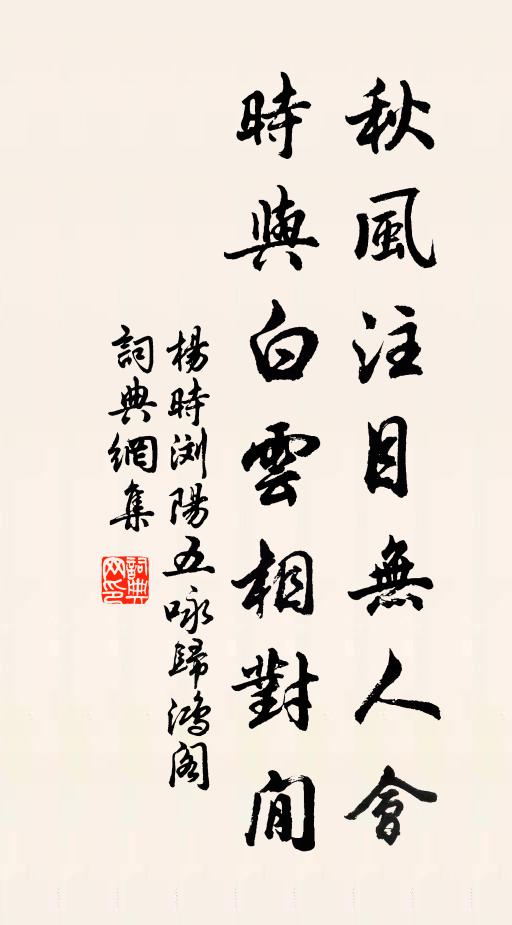 秋風注目無人會
時與白雲相對閒
楊時浏陽五咏歸鴻阁
詞典網集
詞典网印